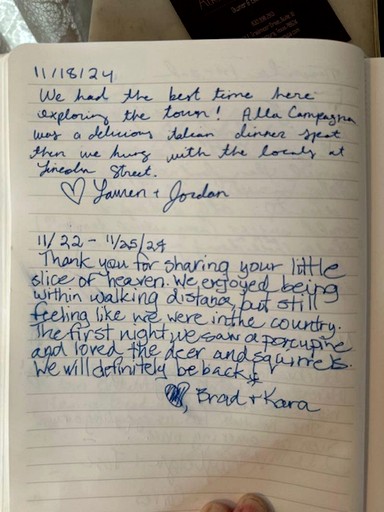 11/18/24
We had the best time here
exploring the town! Alla Campagna
was a delicious italian dinner spot
then we hung with the locals at
Lincoln Street.
♡ Lauren + Jordan
11/22 - 11/25/24
Thank you for sharing your little
slice of heaven. We enjoyed being
within walking distance, but still
feeling like we were in the country.
The first night, we saw a porcupine
and loved the deer and squirrels.
We will definitely be back!
♥, Brad + Kara